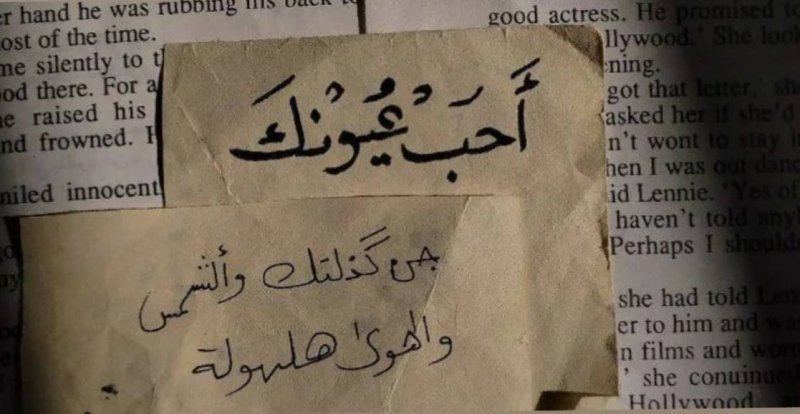 er hand he was rubbing his back to
ost of the time.
me silently to t
od there. For a
e raised his
nd frowned. H
niled innocent
أَحَب عُيُونك
جن گذلتك وألشمس
والهوىٰ هلهولة
good actress. He promised to
llywood.' She look
ning.
got that letter,' she
asked her if she'd
n't wont to stay i
hen I was out danc
id Lennie. 'Yes of
haven't told any
Perhaps I should
she had told Len
er to him and was
n films and wor
' she conuinued
Hollywood,